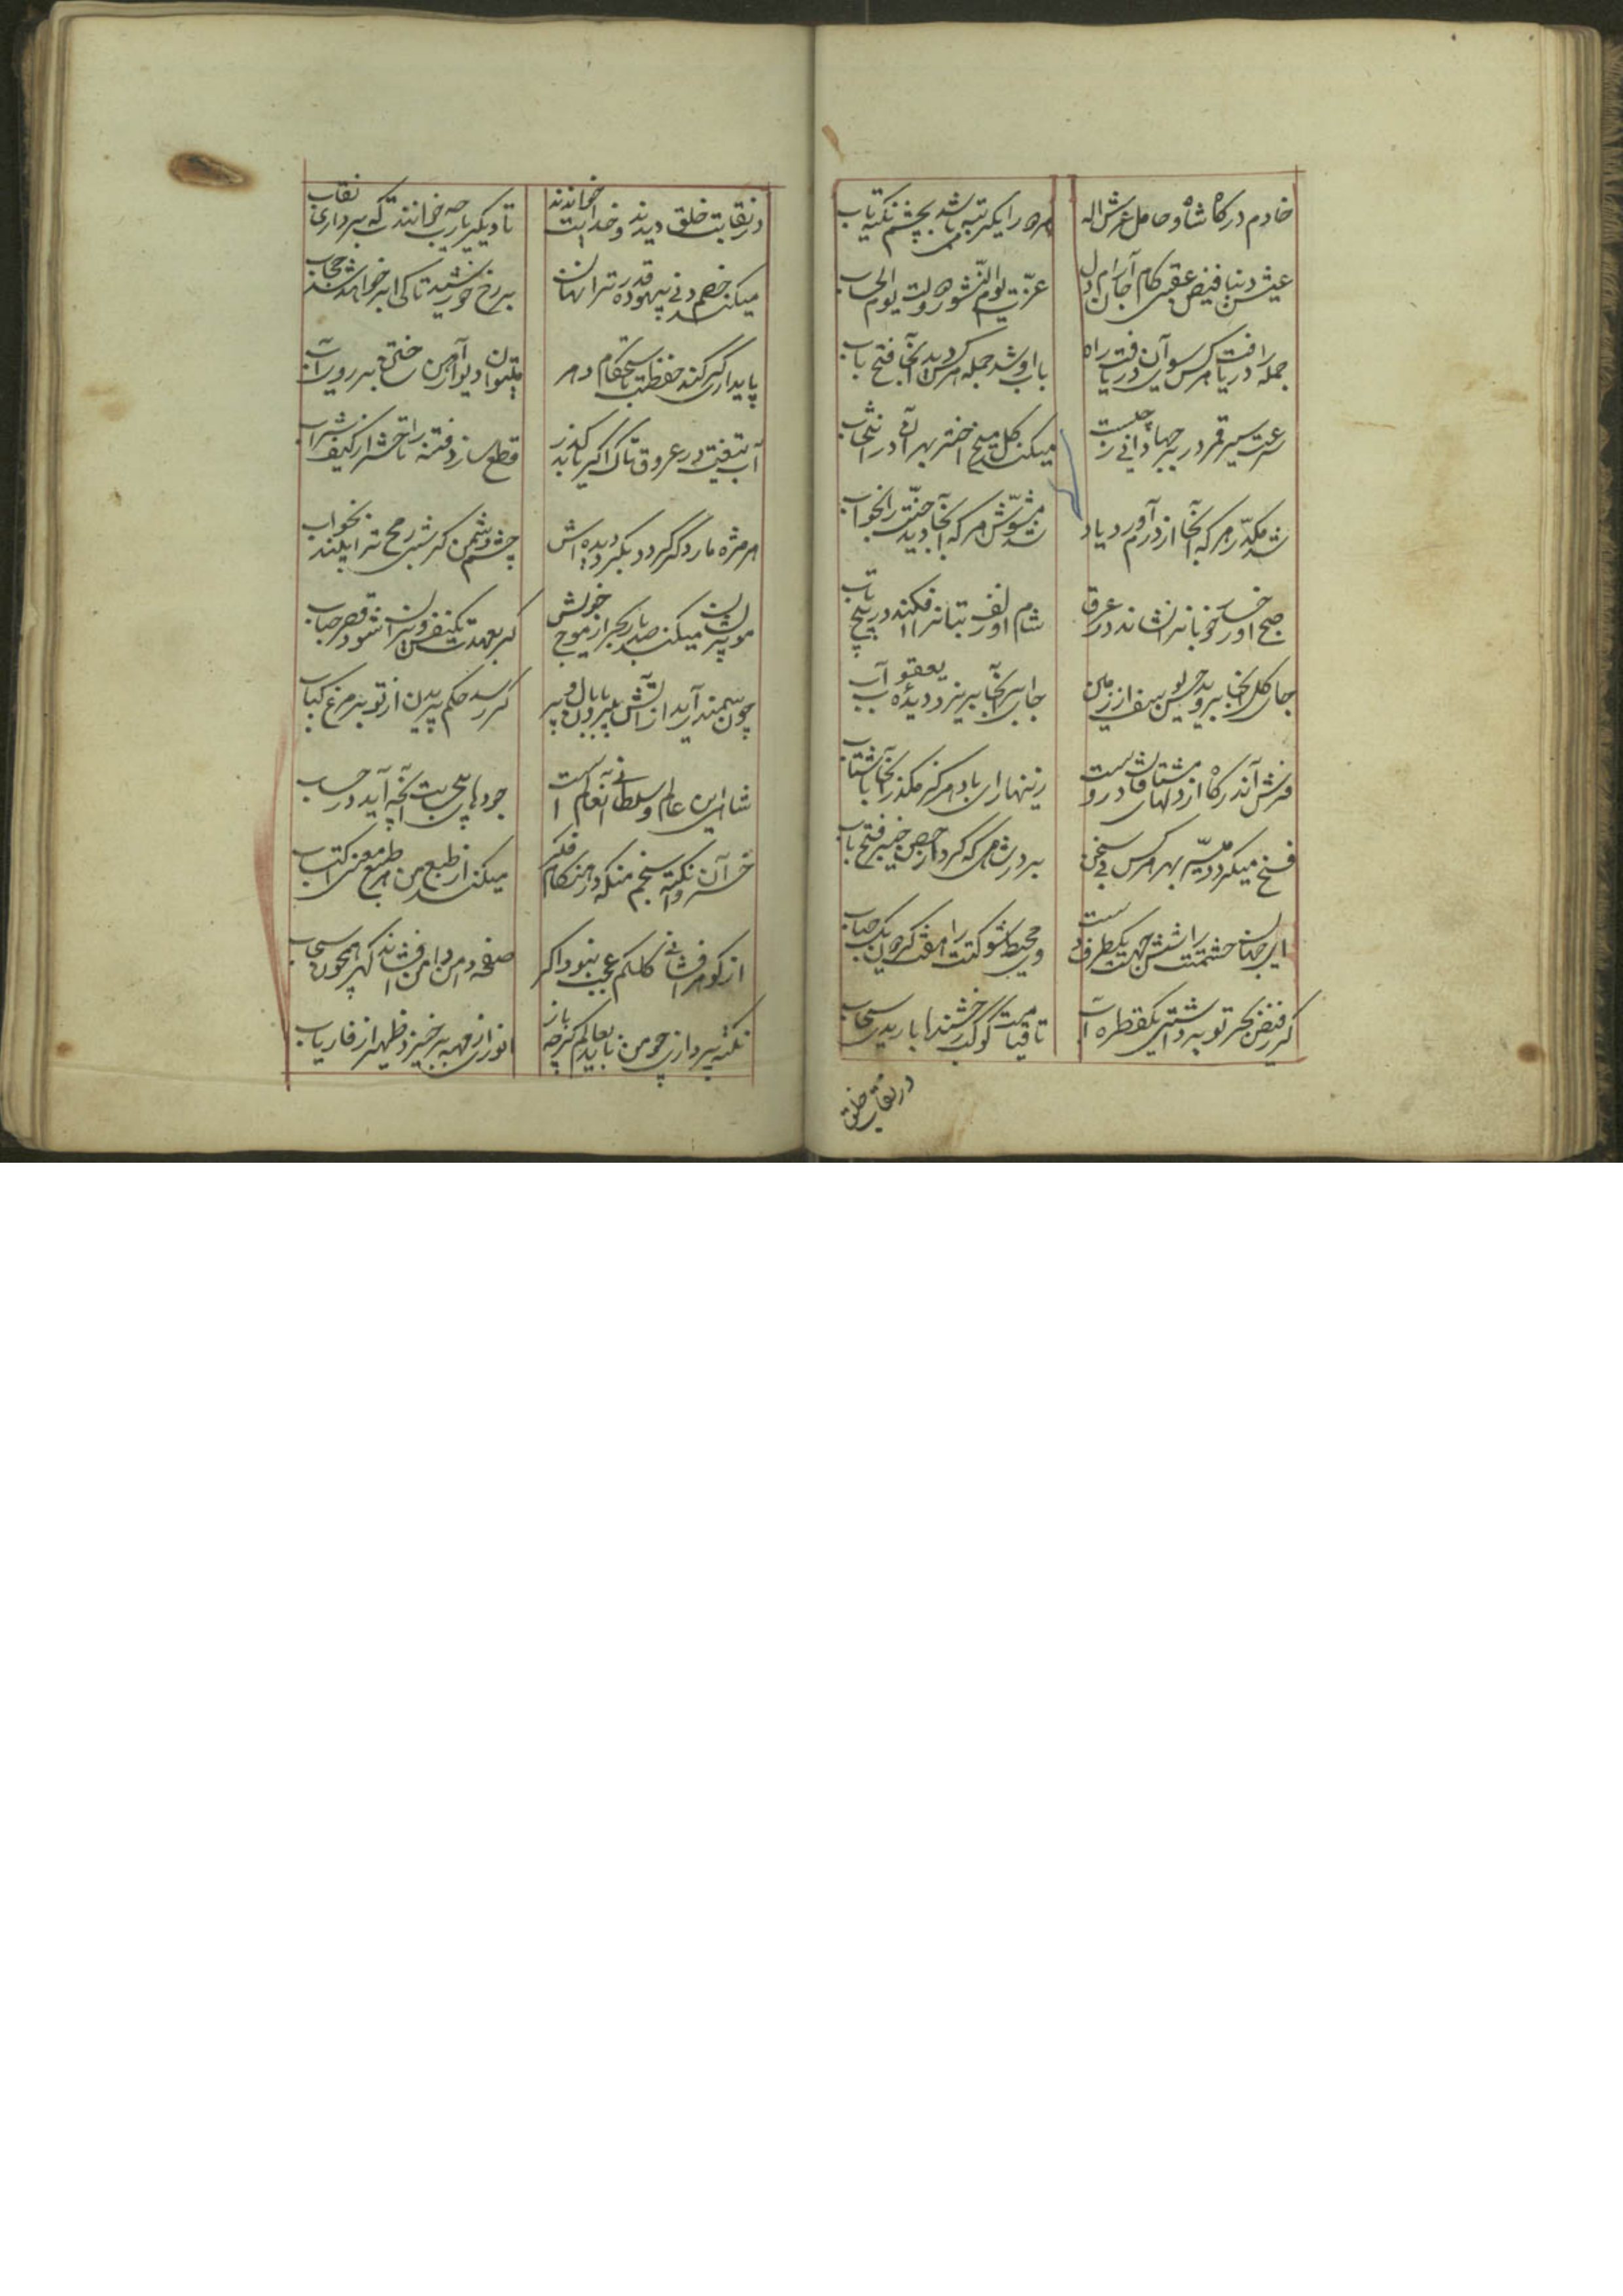 خادم درکاه شاه و حامل عرش اله
هر دو را یکرتبه باشد بچشم نکته یاب
عیش دنیا فیض عقبی کام جان آرام دل
عزت یوم النشور و دولت یوم الحساب
جمله را دریافت هر کس سوی آن دریافت راه
باب او شد جمله هر کس دید آنجا فتح باب
سرعت سیر قمر در برجها دانی ز چیست
میکند کل میخ اختر بهر آن در انتخاب
شد مکدر هر که آنجا از درم آورد یاد
شد مشوش هر که آنجا دید جنت را بخواب
صبح او رخسار خوبانرا نشاند در عرق
شام او زلف بتانرا افکند در پیچ و تاب
جای کل آنجا بروید یوسف از زمین
جای ابر آنجا بریزد دیدهٔ یعقوب آب
فرش آن درکاه از دلهای مشتاقان اوست
زینهار ای باد هرکز مکذر آنجا با شتاب
فتح میکردد میسر بهر هر کس بی سخن
بر در شاهی که کرد از حصن خیبر فتح باب
ای جهان حشمتت را شش جهت یکطرف است
وی محیط شوکتت را هفت کردون یک حباب
کر ز فیض بحر تو برداشتی یکقطره آب
تا قیامت کوکب رخشنده باریدی سحاب
در نقاب خلق
در نقابت خلق دیدند و خدایت خواندند
تا دیکر یارب چه خوانندت که برداری نقاب
میکند خصم دنی بیهوده قدرت را نهان
بر رخ خورشید تا کی ابر خواهد شد حجاب
پایداری کر کند حفظت باستحکام دهر
میتوان دیوار آهن ساختن بر روی آب
آب تیغت در عروق تاک اکر یابد کذر
قطع سازد فتنه را تا حشر از کیف شراب
هر مژه مار دکر کردد بکرد دیده اش
چشم دشمن کر شبی رمح ترا بیند بخواب
موپریشان میکند صد بار بحر از موج خویش
کر بعهدت یکنفس ویران شود قصر حباب
چون سمندر آید از آتش برون با بال و پر
کر رسد حکم پریدن از تو بر مرغ کباب
شاه این عالم و سلطانی آن عالم است
جودهای بیحسابت آنچه آید در حساب
خسرو آن نکته سنجم من که در هنکام فکر
میکند از طبع من طبع معنی اکتساب
از کوهر فشانی کلکم عجب نبود اکر
صفحه در دامن فشاند کهر همچون سحاب
نکته پردازی چو من ناید بعالم کرچه باز
انوری از مهنه برخیزد ظهیر از فاریاب